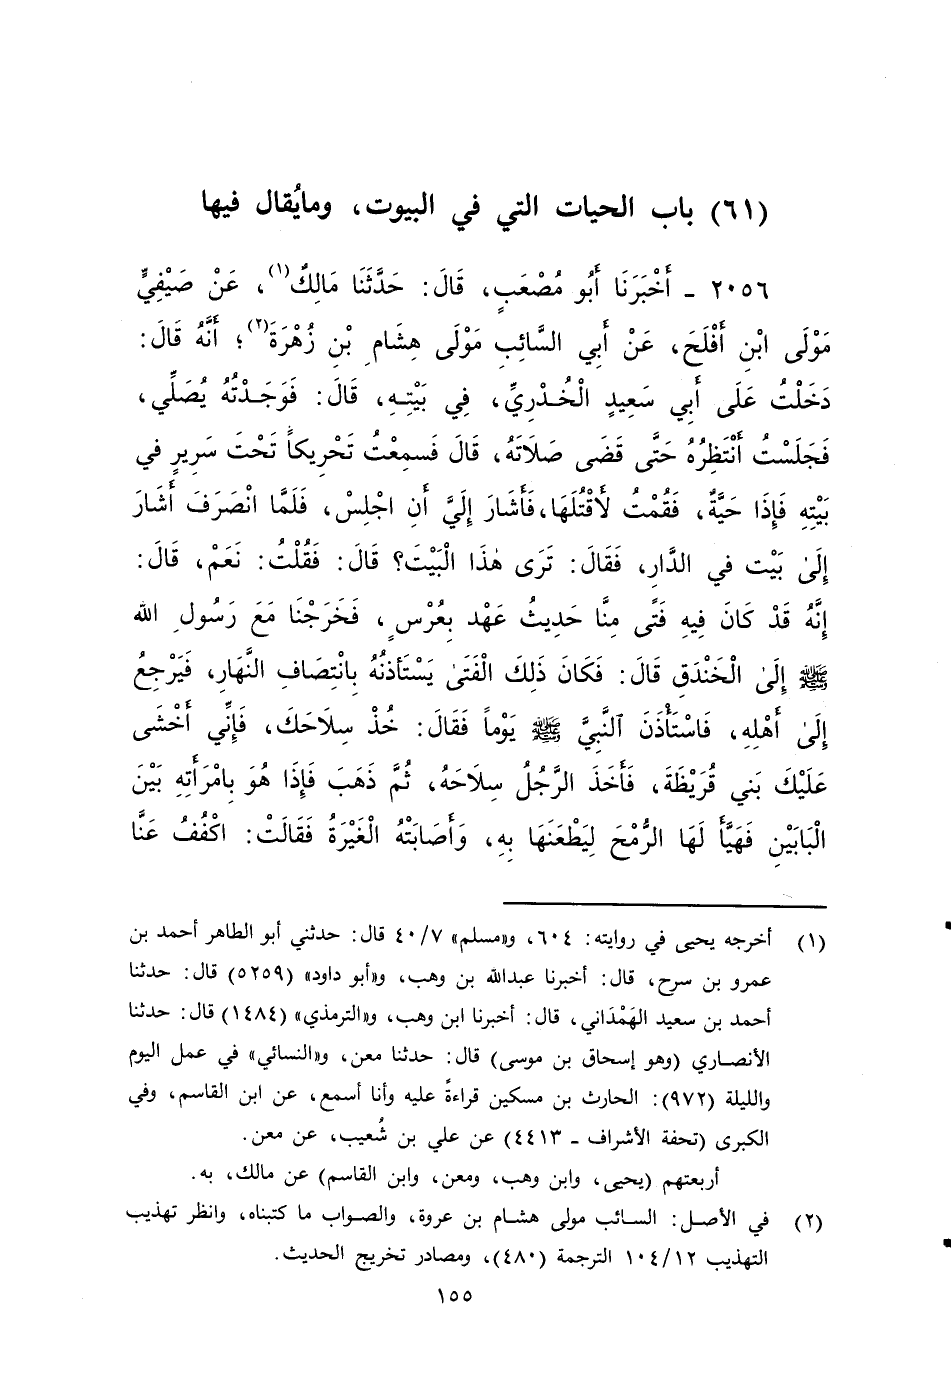 (٦١) باب الحيات التي في البيوت، ومايُقال فيها
٢٠٥٦ ـ أَخْبَرَنَا أَبُو مُصْعَبٍ، قَالَ: حَدَّثَنَا مَالِكٌ(١)، عَنْ صَيْفِيٍّ
مَوْلَى ابْنِ أَفْلَحَ، عَنْ أَبِي السَّائِبِ مَوْلَى هِشَامِ بْنِ زُهْرَةَ(٢)؛ أَنَّهُ قَالَ:
دَخَلْتُ عَلَى أَبِي سَعِيدٍ الْخُدْرِيِّ، فِي بَيْتِهِ، قَالَ: فَوَجَدْتُهُ يُصَلِّي،
فَجَلَسْتُ أَنْتَظِرُهُ حَتَّى قَضَى صَلَاتَهُ، قَالَ فَسمِعْتُ تَحْرِيكاً تَحْتَ سَرِيرٍ فِي
بَيْتِهِ فَإِذَا حَيَّةٌ، فَقُمْتُ لأَقْتُلَهَا، فَأَشَارَ إِلَيَّ أَنِ اجْلِسْ، فَلَمَّا انْصَرَفَ أَشَارَ
إِلَىٰ بَيْتٍ فِي الدَّارِ، فَقَالَ: تَرَى هٰذَا الْبَيْتَ؟ قَالَ: فَقُلْتُ: نَعَمْ، قَالَ:
إِنَّهُ قَدْ كَانَ فِيهِ فَتًى مِنَّا حَدِيثُ عَهْدٍ بِعُرْسٍ، فَخَرَجْنَا مَعَ رَسُولِ الله
ﷺ إِلَىٰ الْخَنْدَقِ قَالَ: فَكَانَ ذٰلِكَ الْفَتَىٰ يَسْتَأْذِنُهُ بِانْتِصَافِ النَّهَارِ، فَيَرْجِعُ
إِلَىٰ أَهْلِهِ، فَاسْتَأْذَنَ ٱلنَّبِيَّ ﷺ يَوْماً فَقَالَ: خُذْ سِلَاحَكَ، فَإِنِّي أَخْشَى
عَلَيْكَ بَنِي قُرَيْظَةَ، فَأَخَذَ الرَّجُلُ سِلَاحَهُ، ثُمَّ ذَهَبَ فَإِذَا هُوَ بِامْرَأَتِهِ بَيْنَ
الْبَابَيْنِ فَهَيَّأَ لَهَا الرُّمْحَ لِيَطْعَنَهَا بِهِ، وَأَصَابَتْهُ الْغَيْرَةُ فَقَالَتْ: اكْفُفْ عَنَّا
(١) أخرجه يحيى في روايته: ٦٠٤، و«مسلم» ٤٠/٧ قال: حدثني أبو الطاهر أحمد بن
عمرو بن سرح، قال: أخبرنا عبدالله بن وهب، و«أبو داود» (٥٢٥٩) قال: حدثنا
أحمد بن سعيد الهَمْدَاني، قال: أخبرنا ابن وهب، و«الترمذي» (١٤٨٤) قال: حدثنا
الأنصاري (وهو إسحاق بن موسى) قال: حدثنا معن، و«النسائي» في عمل اليوم
والليلة (٩٧٢): الحارث بن مسكين قراءةً عليه وأنا أسمع، عن ابن القاسم، وفي
الكبرى (تحفة الأشراف ـ ٤٤١٣) عن علي بن شُعيب، عن معن.
أربعتهم (يحيى، وابن وهب، ومعن، وابن القاسم) عن مالك، به.
(٢) في الأصل: السائب مولى هشام بن عروة، والصواب ما كتبناه، وانظر تهذيب
التهذيب ١٠٤/١٢ الترجمة (٤٨٠)، ومصادر تخريج الحديث.
١٥٥